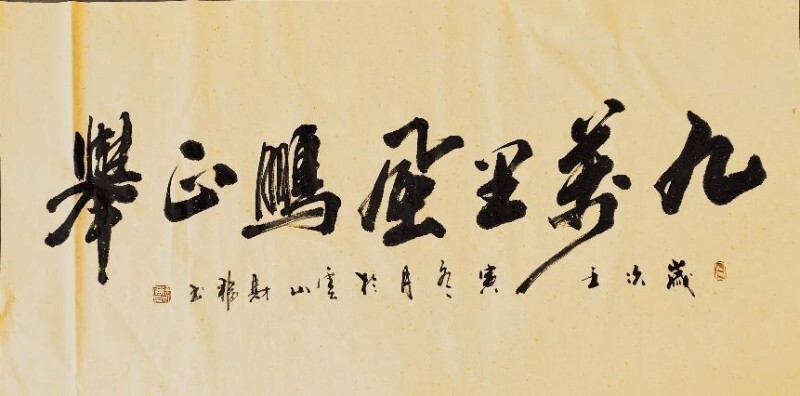 九萬里風鵬正舉
歲次壬寅冬月於雲山財瑞书